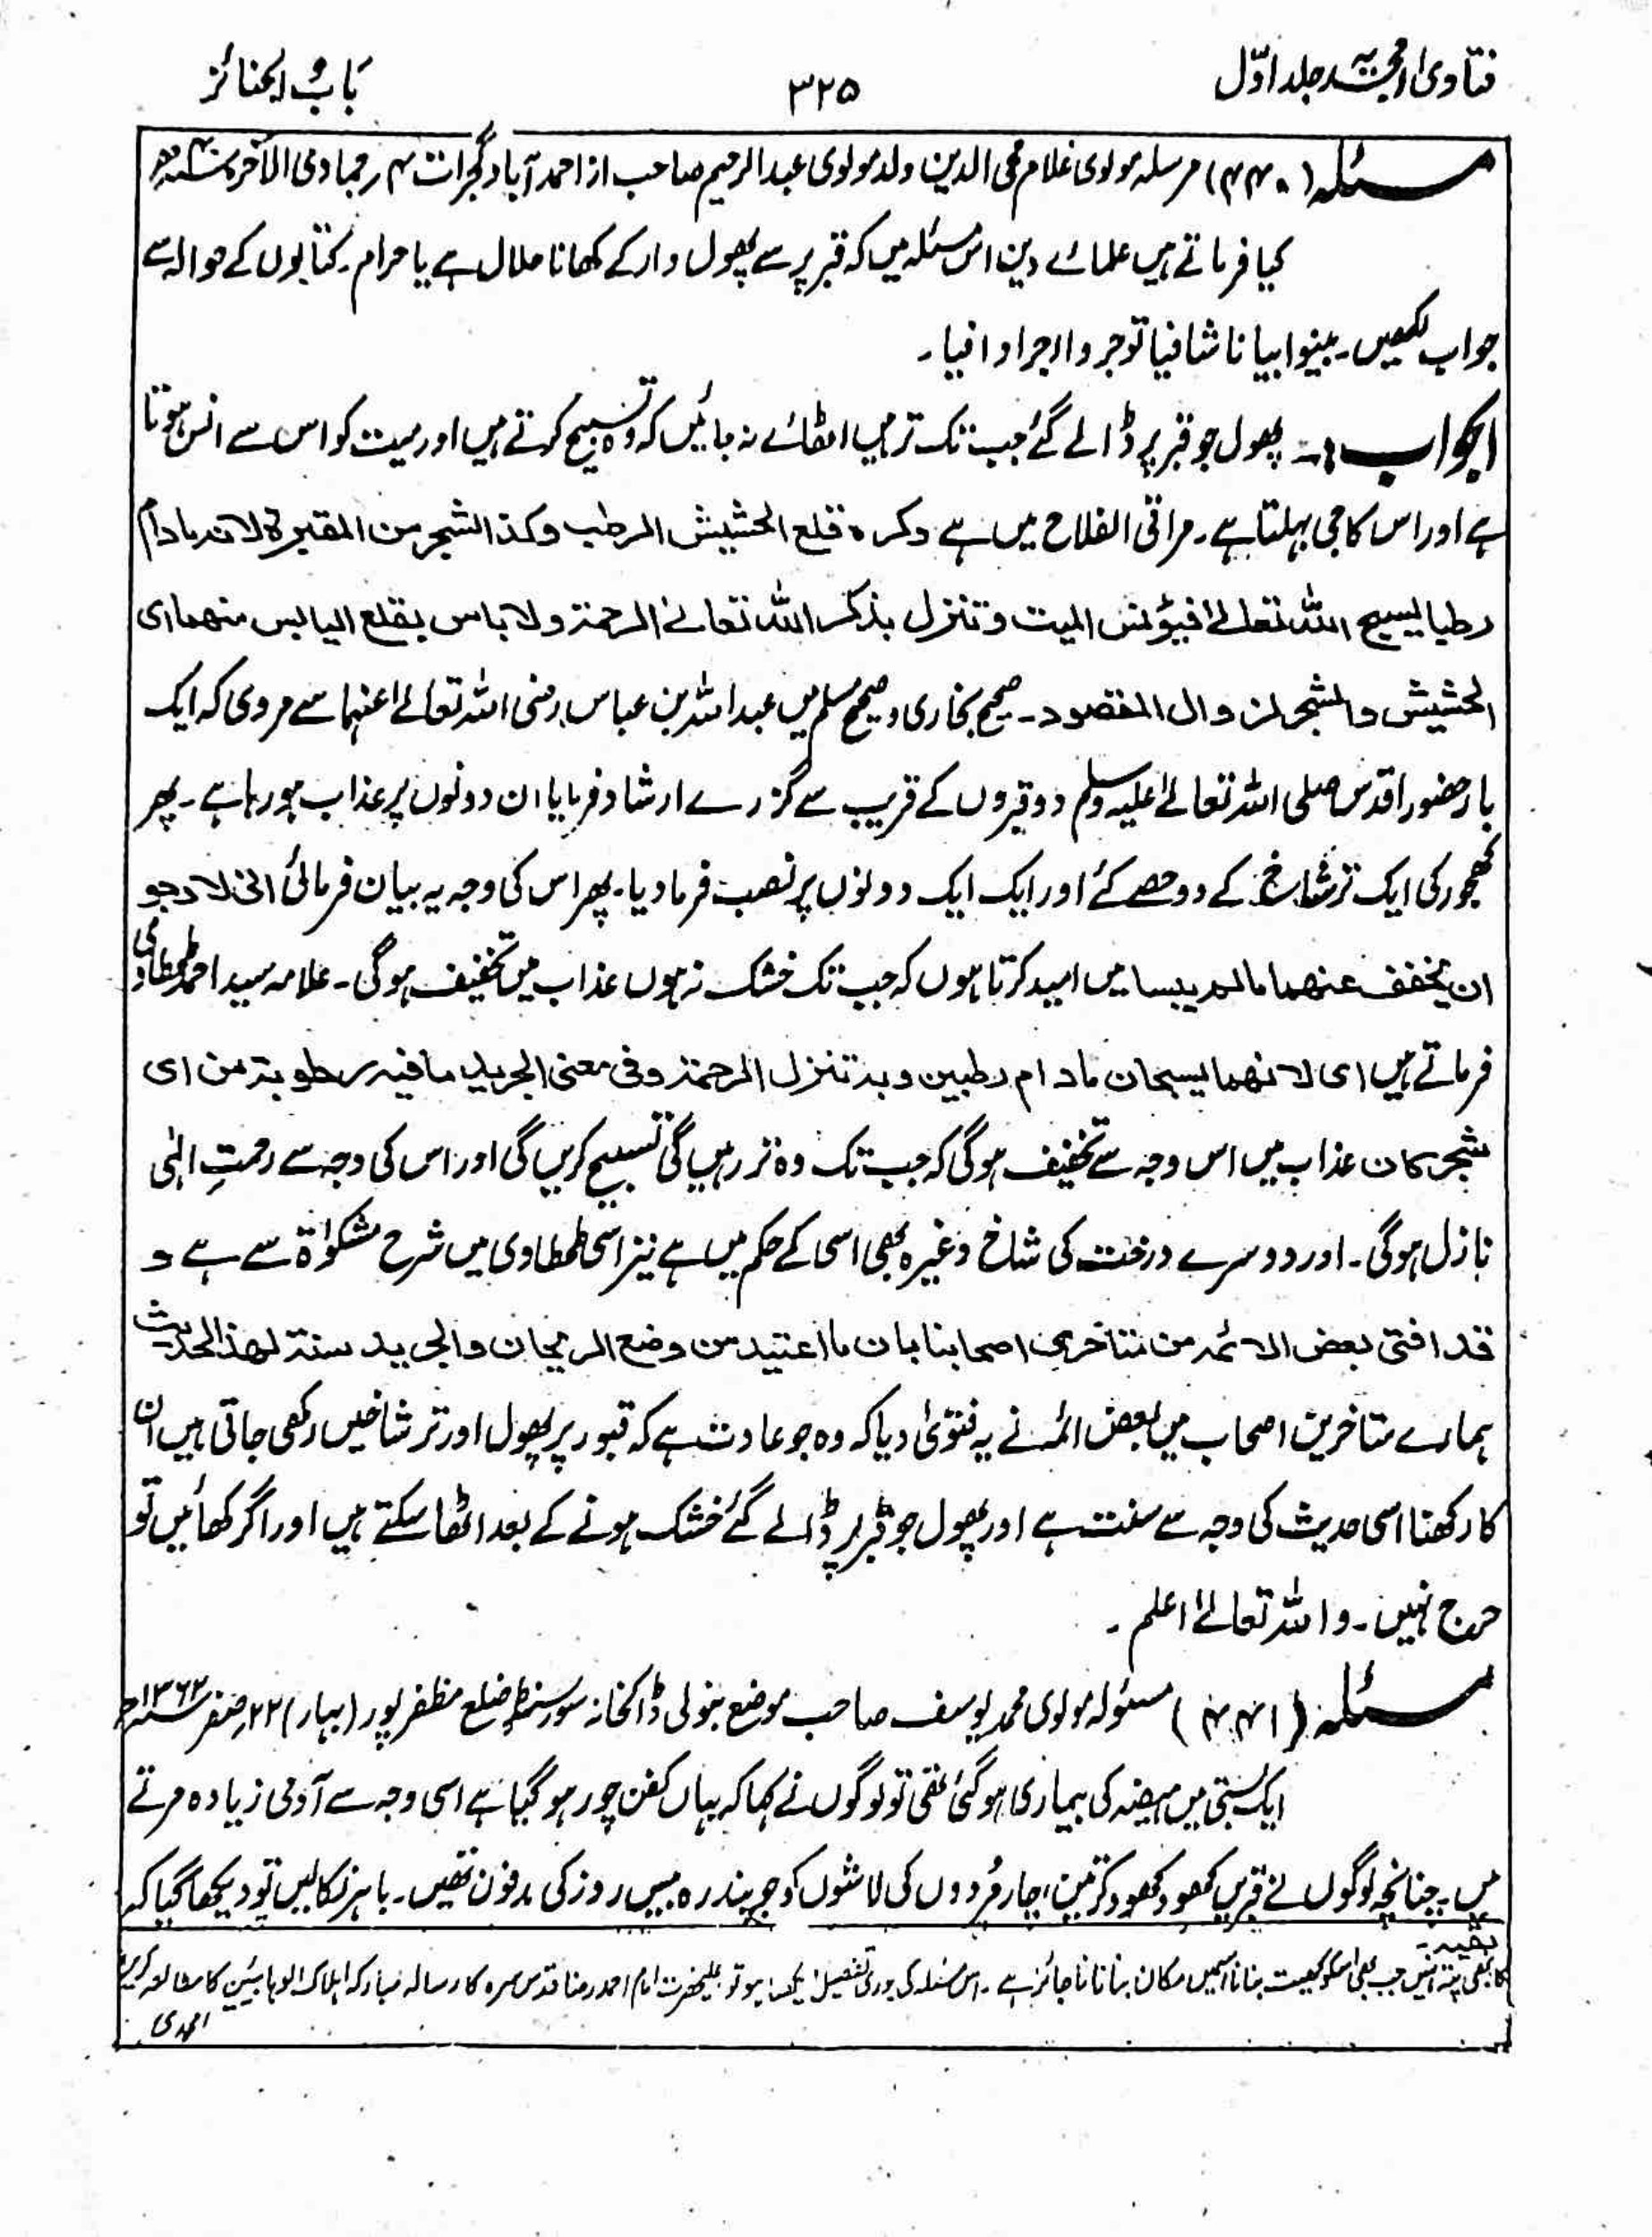 فتاویٰ امجدیہ جلد اوّل
۳۲۵
بَابُ الجنائز
مسئلہ (۴۴۰) مرسلہ مولوی غلام محی الدین ولد مولوی عبدالرحیم صاحب از احمد آباد گجرات ۴؍ جمادی الآخر
کیا فرماتے ہیں علمائے دین اس مسئلہ میں کہ قبر پر سے پھول وار کے کھانا حلال ہے یا حرام۔ کتابوں کے حوالہ سے
جواب لکھیں۔ بینوا بیانا شافیا توجروا اجرا وافیا۔
الجواب:۔ پھول جو قبر پر ڈالے گئے جب تک تر ہیں اٹھائے نہ جائیں کہ وہ تسبیح کرتے ہیں اور میت کو اس سے انس ہوتا
ہے اور اس کا جی بہلتا ہے۔ مراقی الفلاح میں ہے وکرہ قلع الحشیش الرطب وکذا الشجر من المقبرۃ لانہ مادام
رطبا یسبح اللہ تعالےٰ فیؤنس المیت وتنزل بذکر اللہ تعالےٰ الرحمۃ ولا باس بقلع الیابس منھما ای
الحشیش والشجر لزوال المقصود۔ صحیح بخاری و صحیح مسلم میں عبد اللہ بن عباس رضی اللہ تعالےٰ عنہما سے مروی کہ ایک
بار حضور اقدس صلی اللہ تعالےٰ علیہ وسلم دو قبروں کے قریب سے گزرے ارشاد فرمایا ان دونوں پر عذاب ہورہا ہے۔ پھر
کھجور کی ایک تر شاخ کے دو حصے کئے اور ایک ایک دونوں پر نصب فرما دیا۔ پھر اس کی وجہ یہ بیان فرمائی انی لارجو
ان یخفف عنھما مالم ییبسا میں امید کرتا ہوں کہ جب تک خشک نہ ہوں عذاب میں تخفیف ہوگی۔ علامہ سید احمد طحطاوی
فرماتے ہیں ای لانھما یسبحان مادام رطبین وبہ تنزل الرحمۃ وفی معنی الجرید مافیہ رطوبۃ من ای
شجر کان عذاب میں اس وجہ سے تخفیف ہوگی کہ جب تک وہ تر رہیں گی تسبیح کریں گی اور اس کی وجہ سے رحمتِ الٰہی
نازل ہوگی۔ اور دوسرے درخت کی شاخ وغیرہ بھی اسی کے حکم میں ہے نیز اسی طحطاوی میں شرح مشکوٰۃ سے ہے و
قد افتی بعض الائمہ من متاخری اصحابنا بان ما اعتید من وضع الریحان والجرید سنۃ لھذا الحدیث
ہمارے متاخرین اصحاب میں بعض ائمہ نے یہ فتویٰ دیا کہ وہ جو عادت ہے کہ قبور پر پھول اور تر شاخیں رکھی جاتی ہیں ان
کا رکھنا اسی حدیث کی وجہ سے سنت ہے اور پھول جو قبر پر ڈالے گئے خشک ہونے کے بعد اٹھا سکتے ہیں اور اگر کھائیں تو
حرج نہیں۔ واللہ تعالےٰ اعلم۔
مسئلہ (۴۴۱) مسئولہ مولوی محمد یوسف صاحب موضع بنولی ڈاکخانہ ضلع مظفر پور (بہار) ۲۲؍ صفر ۱۳۶۲ھ
ایک بستی میں ہیضہ کی بیماری ہوگئی تھی تو لوگوں نے کہا کہ یہاں کفن چور ہو گیا ہے اسی وجہ سے آدمی زیادہ مرتے
ہیں۔ چنانچہ لوگوں نے قبریں کھود کھود کر تین، چار مُردوں کی لاشوں کو جو پندرہ بیس روز کی مدفون تھیں۔ باہر نکالیں تو دیکھا گیا کہ
بقیہ۔
کا بھی پتہ نہیں جب بھی اسکو کھیت بنانا اسمیں مکان بنانا ناجائز ہے۔ اس مسئلہ کی پوری تفصیل دیکھنا ہو تو اعلیحضرت امام احمد رضا قدس سرہ کا رسالہ مبارکہ اہلاک الوہابیین کا مطالعہ کریں
امجدی